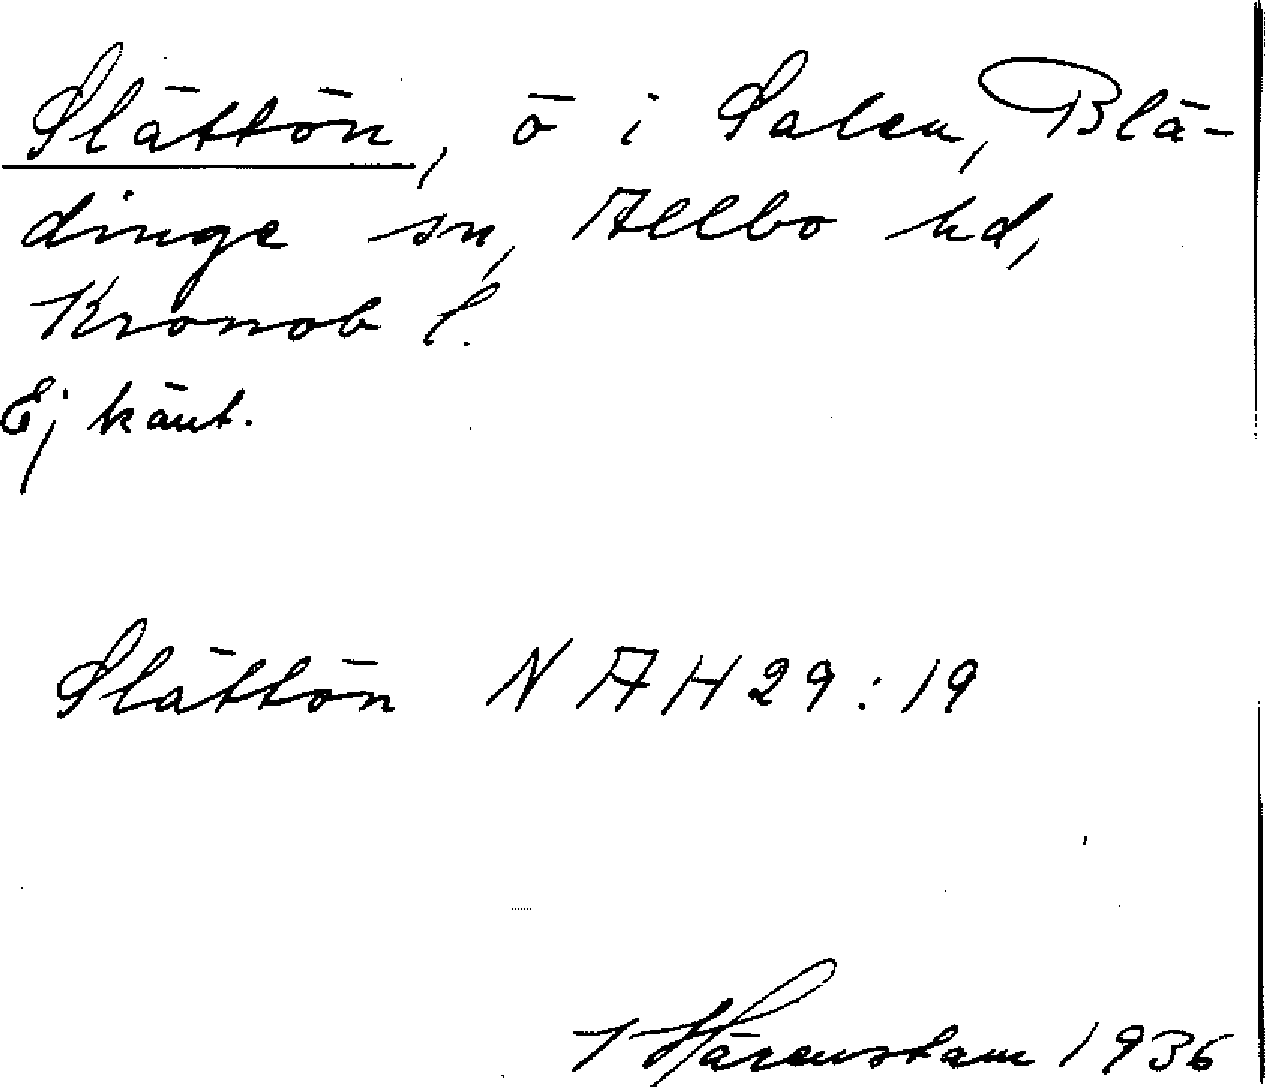 Slättön, ö i Salen, Blä-
dinge sn, Allbo hd,
Kronob l.
Ej känt.
Slättön N A H 29:19
Härenstam 1936